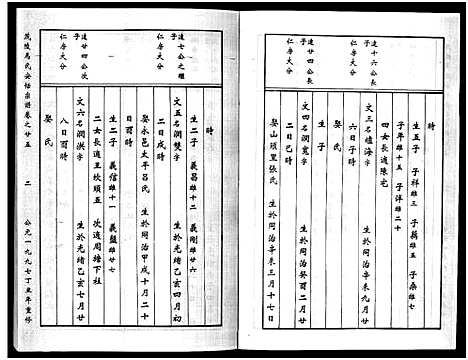 連十六公長
子
仁房大分
連廿四公長
子
仁房大分
時
生五子 子祥雄五 子萬雄五 子桑雄七
子年雄十五 子洋雄二十
四女長適陳宅
文三名 海字 生於光緒辛未九月廿
六日子時
娶 氏
生子
文四名潤寬字 生於同治癸酉二月廿
二日巳時
娶山頭里張氏 生於同治辛未三月十七日
連七公之繼
子
仁房大分
連廿四公次
子
仁房大分
時
生二子 義昌雄十二 義剛雄廿六
文五名潤雙字 生於光緒乙亥四月初
二日戌時
娶永邑太平呂氏 生於同治甲戌十月二十
日酉時
生二子 義信雄十一 義盤雄廿七
二女長適里坎頭五 次適周擔下杜
文六名潤洪字 生於光緒乙亥七月廿
八日酉時
娶 氏
茂陵馬氏安恬宗譜卷之廿五 二 公元一九九七丁丑年重修